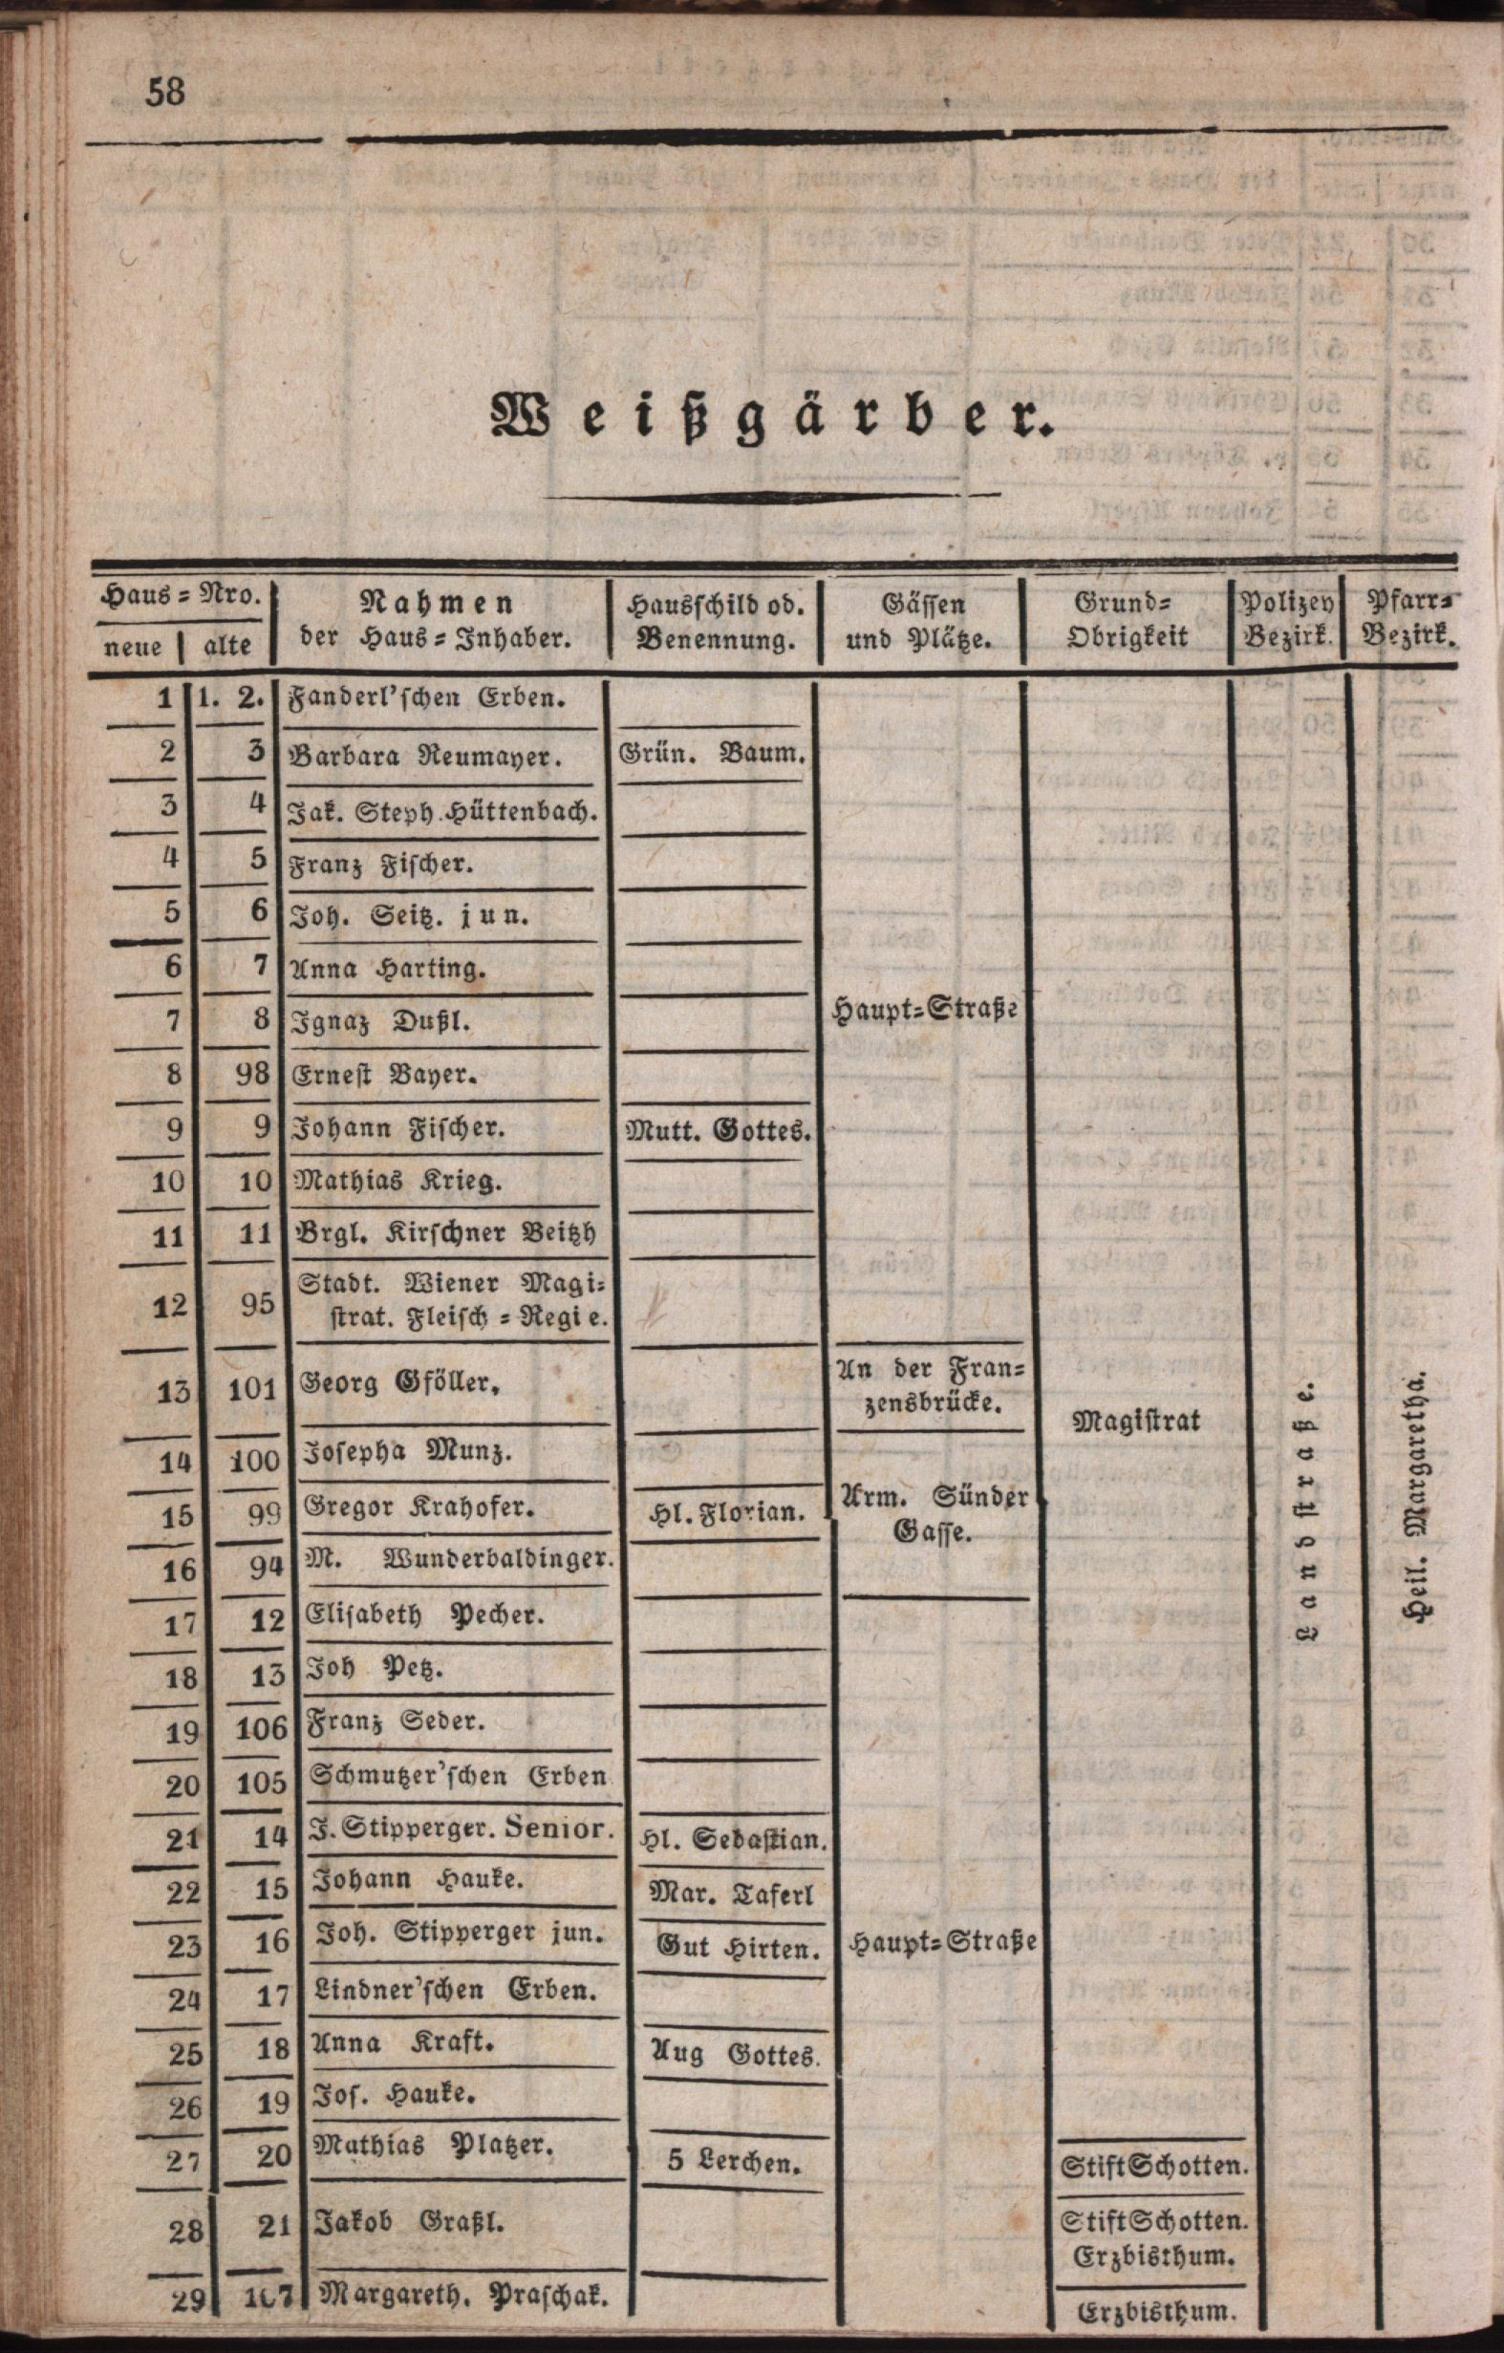 58
Weißgärber.
Haus-Nro. | Nahmen | Hausschild od. | Gässen | Grund- | Polizey | Pfarr-
neue | alte | der Haus-Inhaber. | Benennung. | und Plätze. | Obrigkeit | Bezirk. | Bezirk.
1 | 1. 2. | Fanderl'schen Erben.
2 | 3 | Barbara Neumayer. | Grün. Baum.
3 | 4 | Jak. Steph. Hüttenbach.
4 | 5 | Franz Fischer.
5 | 6 | Joh. Seitz. jun.
6 | 7 | Anna Harting.
7 | 8 | Ignaz Dußl. | Haupt-Straße
8 | 98 | Ernest Bayer.
9 | 9 | Johann Fischer. | Mutt. Gottes.
10 | 10 | Mathias Krieg.
11 | 11 | Brgl. Kirschner Beitzh
12 | 95 | Stadt. Wiener Magi-
strat. Fleisch-Regie.
13 | 101 | Georg Gföller. | An der Fran-
zensbrücke. | Magistrat
14 | 100 | Josepha Munz.
15 | 99 | Gregor Krahofer. | Hl. Florian. | Arm. Sünder
Gasse.
Landstraße.
Heil. Margaretha.
16 | 94 | M. Wunderbaldinger.
17 | 12 | Elisabeth Pecher.
18 | 13 | Joh Petz.
19 | 106 | Franz Seder.
20 | 105 | Schmutzer'schen Erben
21 | 14 | J. Stipperger. Senior. | Hl. Sebastian.
22 | 15 | Johann Hauke. | Mar. Taferl
23 | 16 | Joh. Stipperger jun. | Gut Hirten. | Haupt-Straße
24 | 17 | Lindner'schen Erben.
25 | 18 | Anna Kraft. | Aug Gottes.
26 | 19 | Jos. Hauke.
27 | 20 | Mathias Platzer. | 5 Lerchen. | Stift Schotten.
28 | 21 | Jakob Graßl. | Stift Schotten.
Erzbisthum.
29 | 107 | Margareth. Praschak. | Erzbisthum.